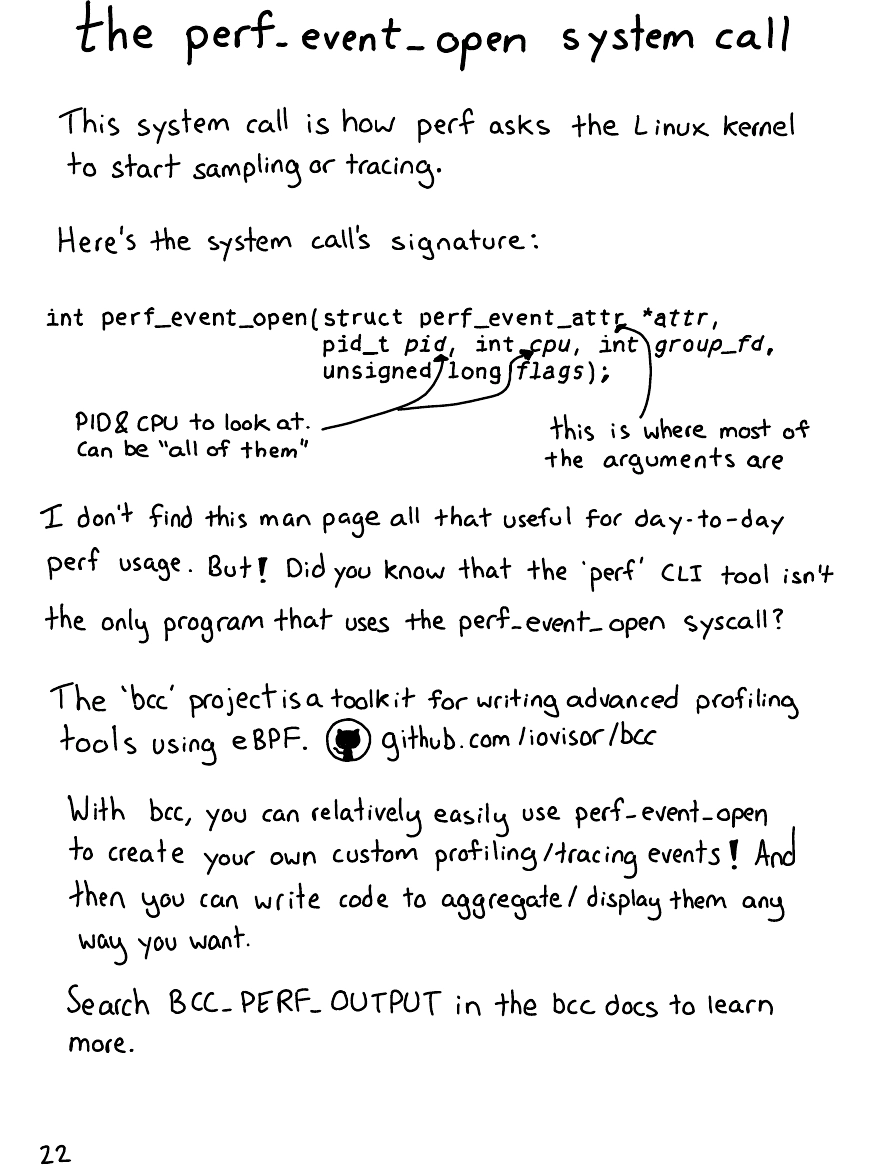 the perf_event_open system call
This system call is how perf asks the Linux kernel
to start sampling or tracing.
Here's the system call's signature:
int perf_event_open(struct perf_event_attr *attr,
pid_t pid, int cpu, int group_fd,
unsigned long flags);
PID & CPU to look at.
Can be "all of them"
this is where most of
the arguments are
I don't find this man page all that useful for day-to-day
perf usage. But! Did you know that the 'perf' CLI tool isn't
the only program that uses the perf_event_open syscall?
The 'bcc' project is a toolkit for writing advanced profiling
tools using eBPF. github.com/iovisor/bcc
With bcc, you can relatively easily use perf-event-open
to create your own custom profiling/tracing events! And
then you can write code to aggregate/display them any
way you want.
Search BCC_PERF_OUTPUT in the bcc docs to learn
more.
22